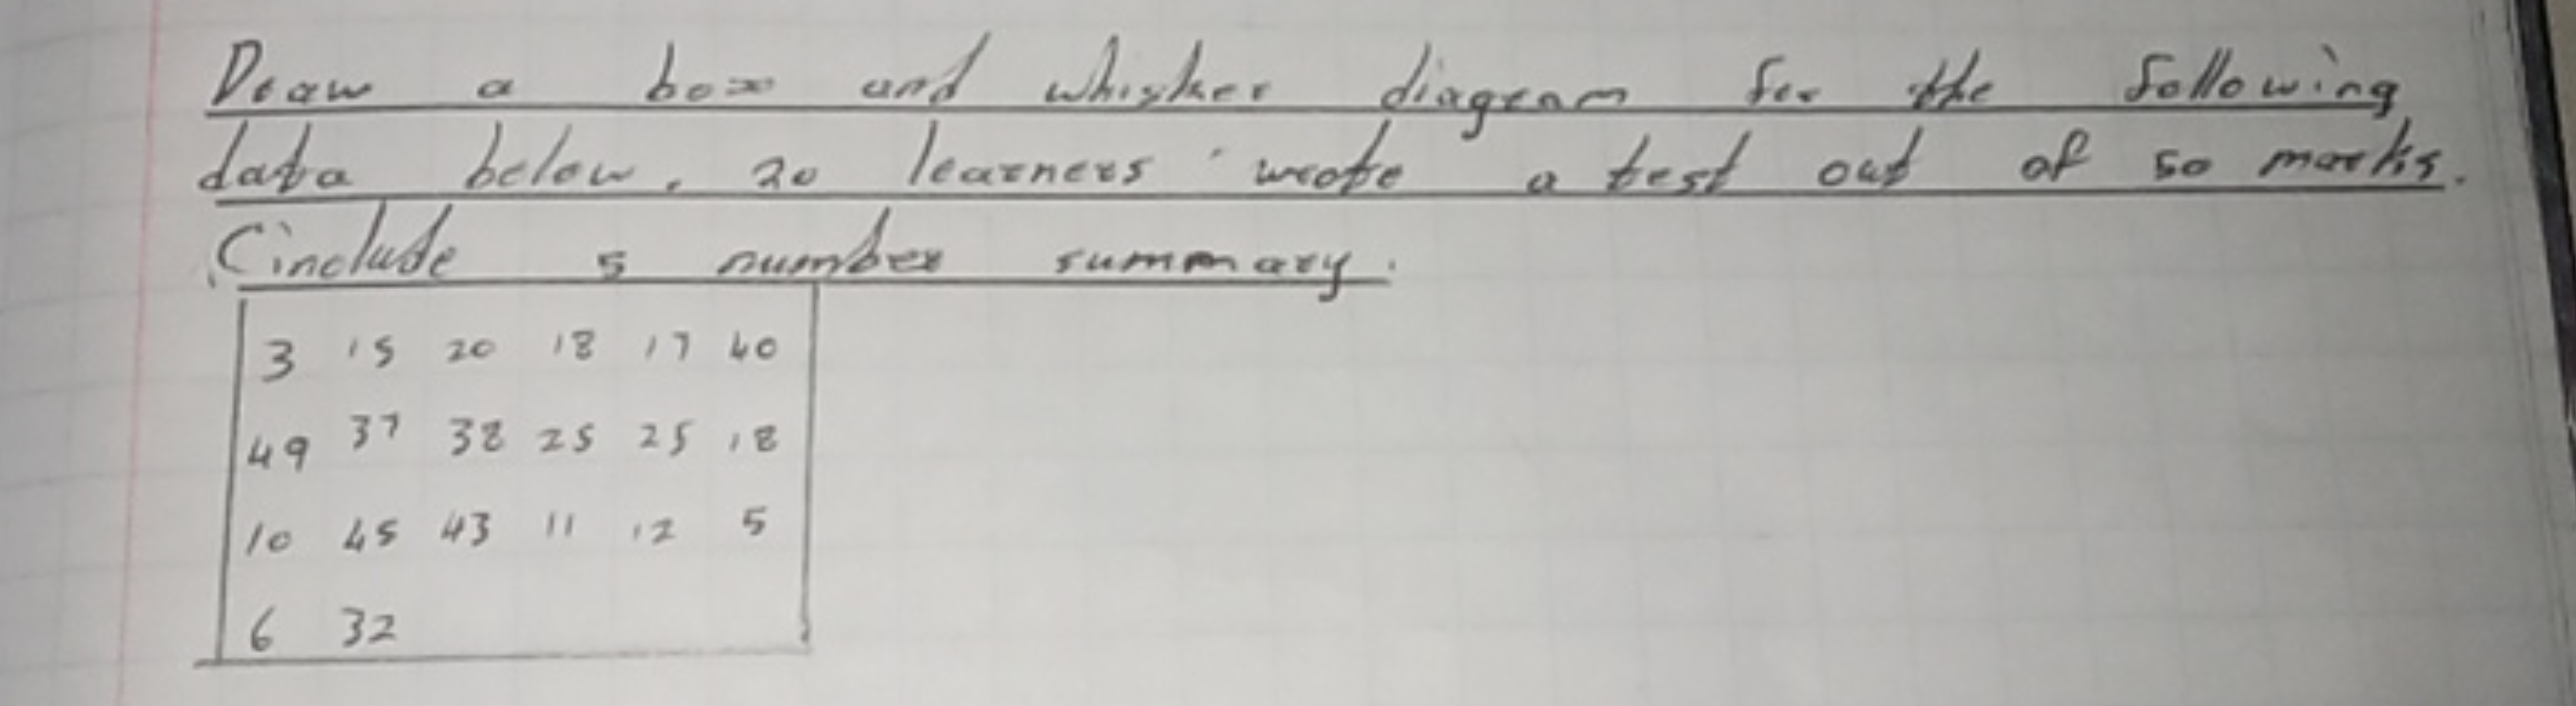 Draw a box and whisker diagram for the following
data below. 20 learners wrote a test out of 50 marks.
(include 5 number summary.
3 15 20 18 17 40
49 37 38 25 25 18
10 45 43 11 12 5
6 32